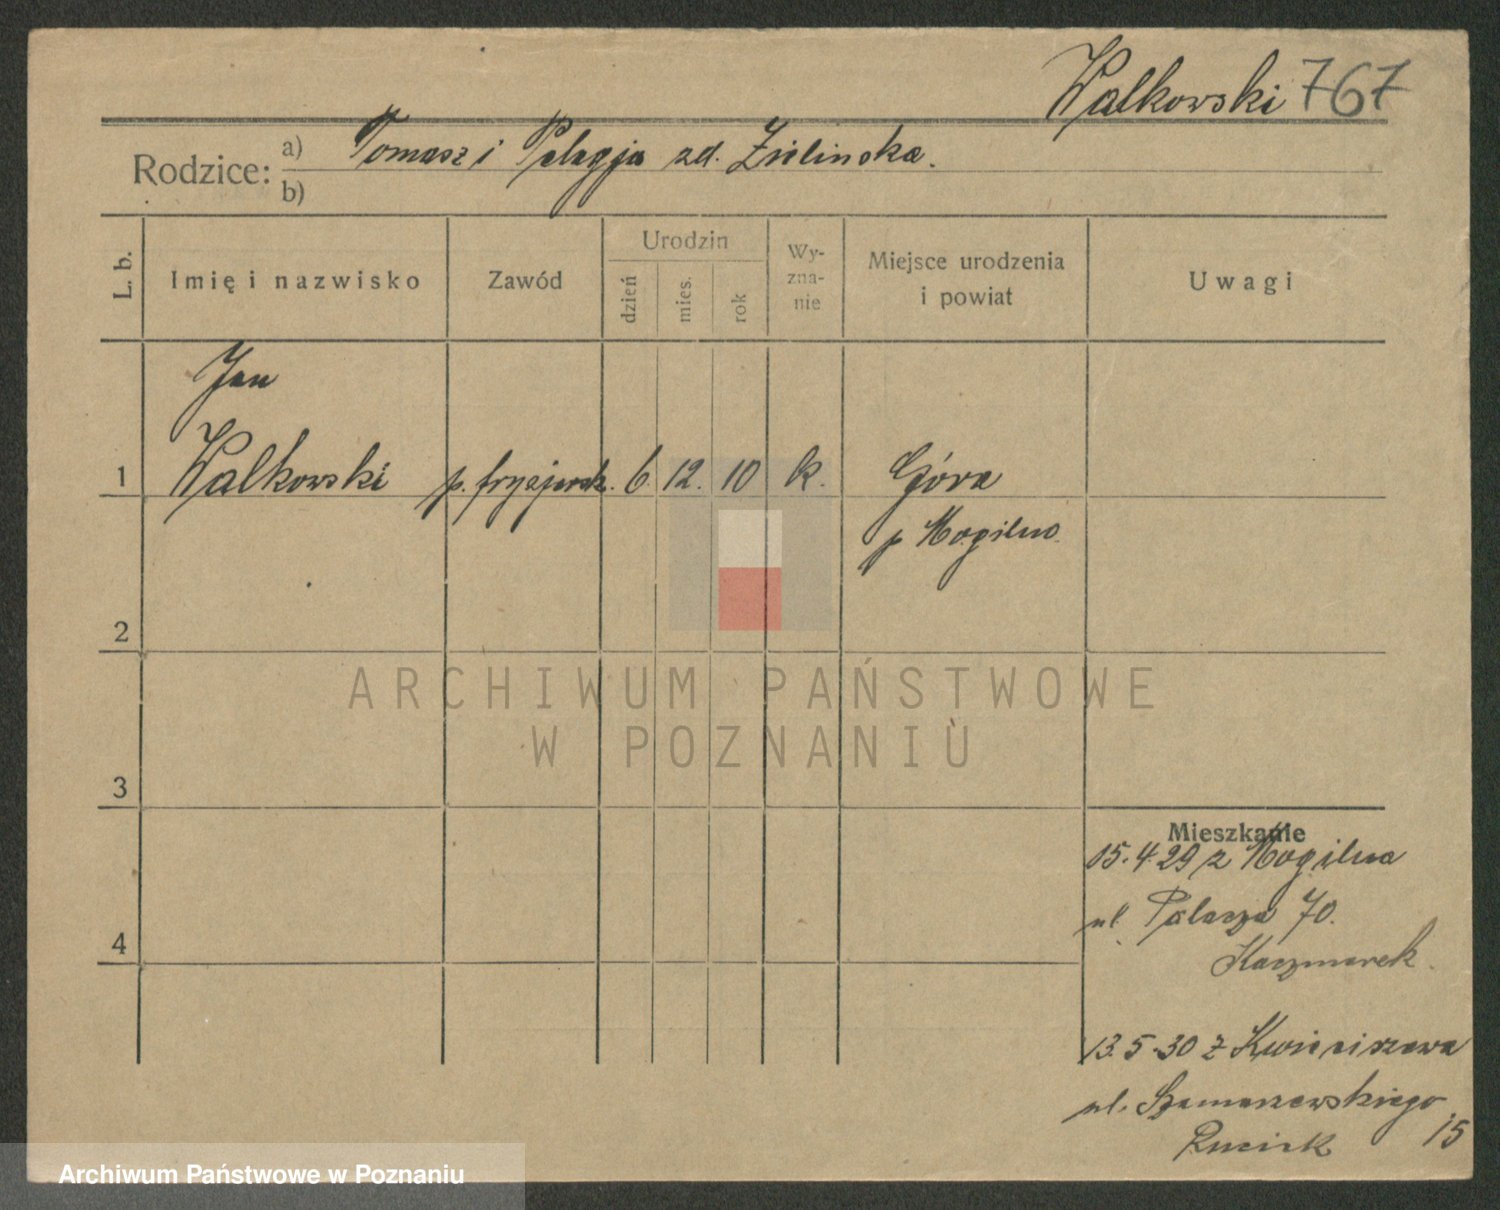 Walkowski 767
Rodzice: a) Tomasz i Pelagja zd. Zielinska.
b)
L. b. Imię i nazwisko Zawód Urodzin dzień mies. rok Wyznanie Miejsce urodzenia i powiat Uwagi
Jan
1 Walkowski p. fryzjersk. 6. 12. 10 k. Góra
p Mogilno.
2
ARCHIWUM PAŃSTWOWE
W POZNANIU
3
Mieszkanie
15.4.29 z Mogilna
ul. Palacza 70.
4
Kaczmarek.
13.5.30 z Kwieciszewa
ul. Szamarzewskiego
15
Archiwum Państwowe w Poznaniu